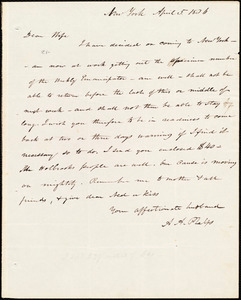 New York April 5th 1836
Dear Wife
I have decided on coming to New York -
- am now at work getting out the specimen number
of the Weekly Emancipator - am well - shall not be
able to return before the last of this or middle of
next week - and shall not then be able to stay
long. I wish you therefore to be in readiness to come
back at two or three days warning if I find it
necessary so to do. I send you enclosed
the Holbrooks people are well. Our Cause is moving
on mightily. Remember me to mother & ask
friends, & give dear Ned a kiss
Your affectionate husband
A. A. Phelps